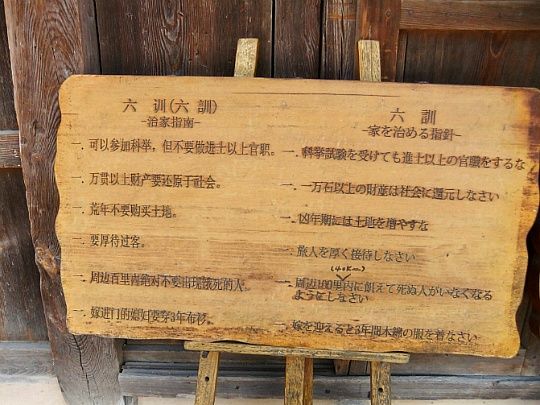 六 训(六 訓)
-治家指南-
一. 可以参加科举，但不要做进士以上官职。
一. 万贯以上财产要还原于社会。
一. 荒年不要购买土地。
一. 要厚待过客。
一. 周边百里内绝对不要出现饿死的人。
一. 嫁进门的媳妇要穿3年布衫。
六 訓
-家を治める指針-
一. 科挙試験を受けても進士以上の官職をするな
一. 一万石以上の財産は社会に還元しなさい
一. 凶年期には土地を増やすな
一. 旅人を厚く接待しなさい
(40km)
一. 周辺100里内に飢えて死ぬ人がいなくなる
ようにしなさい
一. 嫁を迎えると3年間木綿の服を着なさい